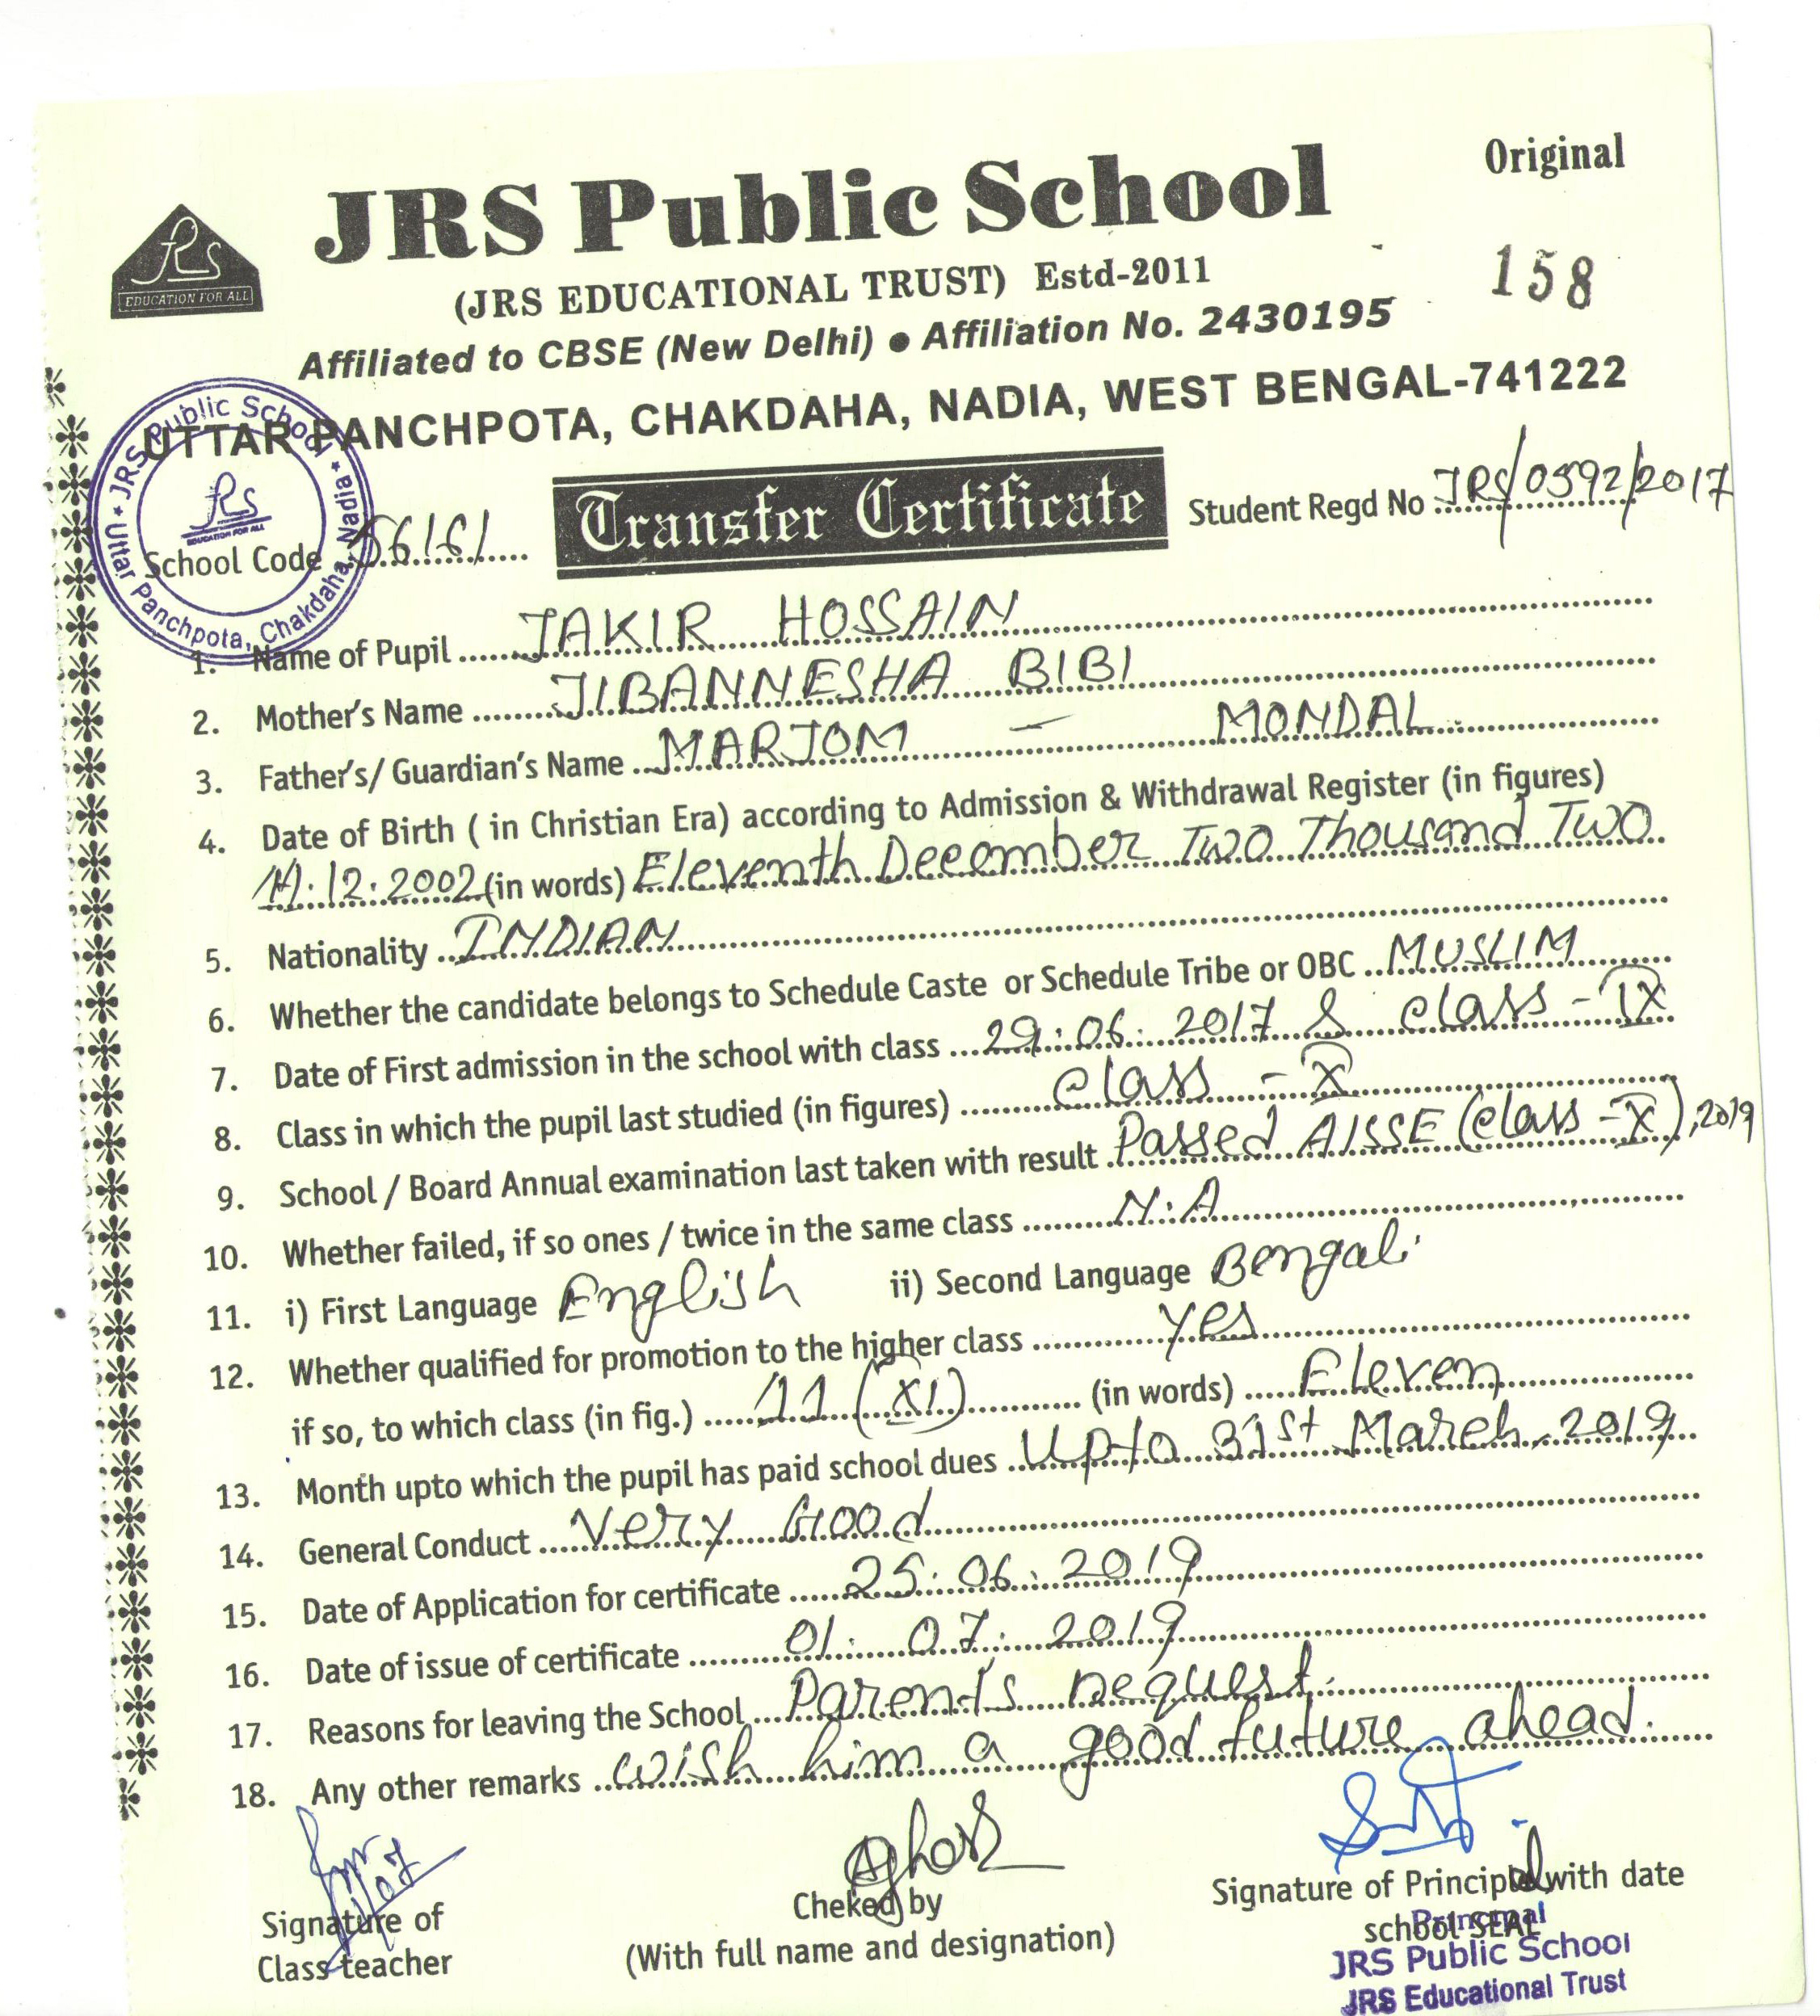 Original
JRS
EDUCATION FOR ALL
JRS Public School
(JRS EDUCATIONAL TRUST) Estd-2011
158
Affiliated to CBSE (New Delhi) ● Affiliation No. 2430195
UTTAR PANCHPOTA, CHAKDAHA, NADIA, WEST BENGAL-741222
JRS Public School * Uttar Panchpota, Chakdaha, Nadia *
JRS
EDUCATION FOR ALL
School Code 56161 Transfer Certificate Student Regd No JRS/0592/2017
1. Name of Pupil JAKIR HOSSAIN
2. Mother's Name JIBANNESHA BIBI
3. Father's/ Guardian's Name MARJOM — MONDAL
4. Date of Birth ( in Christian Era) according to Admission & Withdrawal Register (in figures)
11.12.2002 (in words) Eleventh December Two Thousand Two
5. Nationality INDIAN
6. Whether the candidate belongs to Schedule Caste or Schedule Tribe or OBC MUSLIM
7. Date of First admission in the school with class 29.06.2017 & class - IX
8. Class in which the pupil last studied (in figures) class - X
9. School / Board Annual examination last taken with result Passed AISSE (class - X), 2019
10. Whether failed, if so ones / twice in the same class N.A
11. i) First Language English ii) Second Language Bengali
12. Whether qualified for promotion to the higher class yes
if so, to which class (in fig.) 11 (XI) (in words) Eleven
13. Month upto which the pupil has paid school dues Upto 31st March, 2019
14. General Conduct Very Good
15. Date of Application for certificate 25.06.2019
16. Date of issue of certificate 01.07.2019
17. Reasons for leaving the School Parents request.
18. Any other remarks wish him a good future ahead.
Signature of
Class teacher
Cheked by
(With full name and designation)
Signature of Principal with date
school SEAL
Principal
JRS Public School
JRS Educational Trust